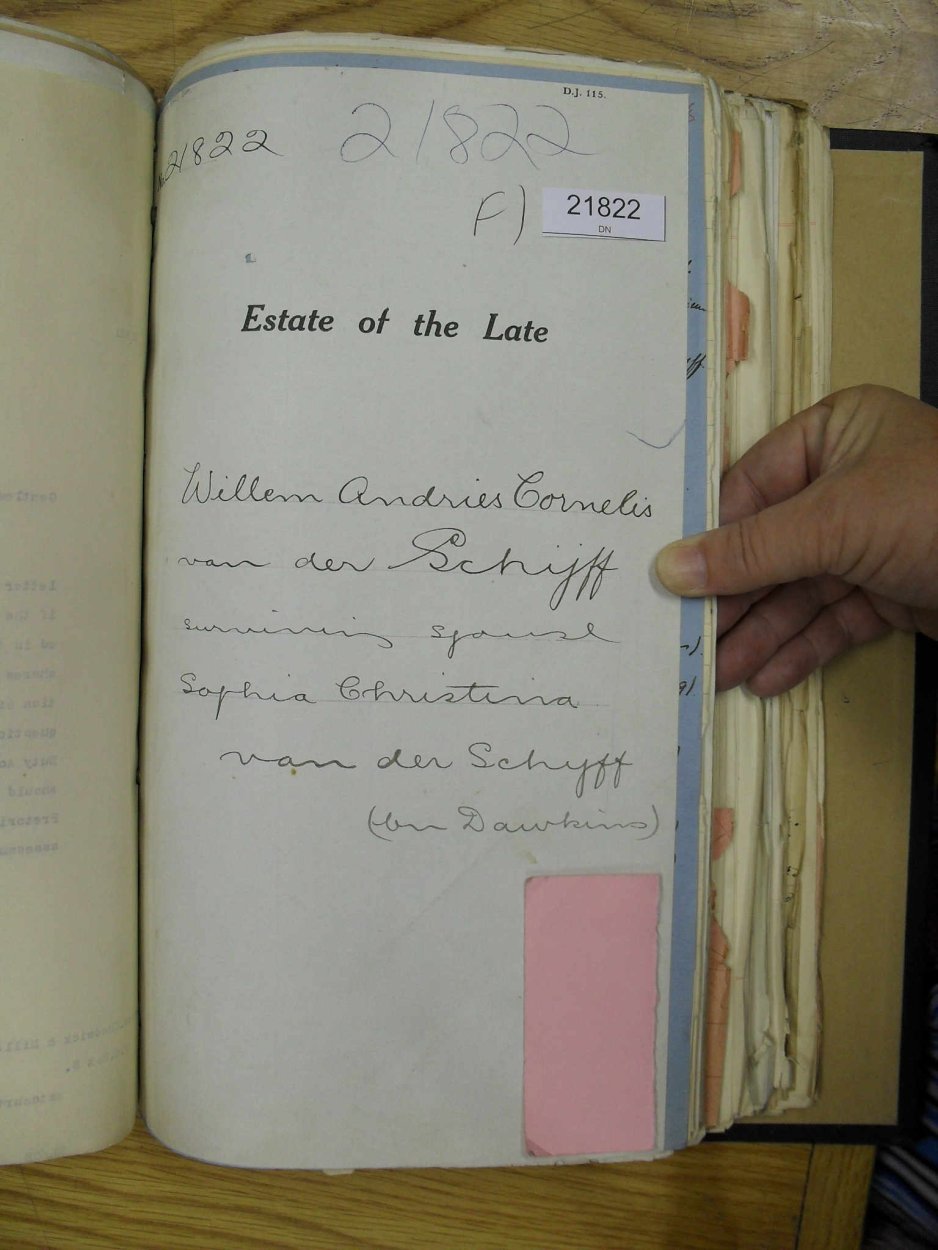 D.J. 115.
21822
21822
F)
21822
DN
Estate of the Late
Willem Andries Cornelis
van der Schijff
surviving spouse
Sophia Christina
van der Schyff
(bn Dawkins)